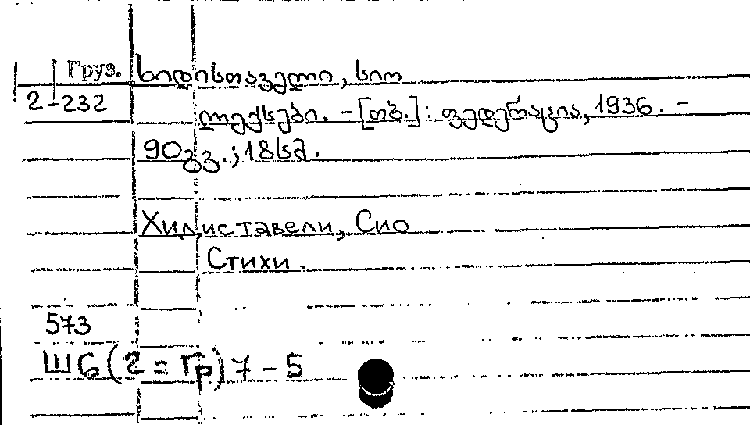 Груз. ხიდისთაველი, სიო
2-232
ლექსები. - [თბ.]: ფედერაცია, 1936. -
90გვ.; 18სმ.
Хидиставели, Сио
Стихи.
573
Ш6(2=Гр)7-5